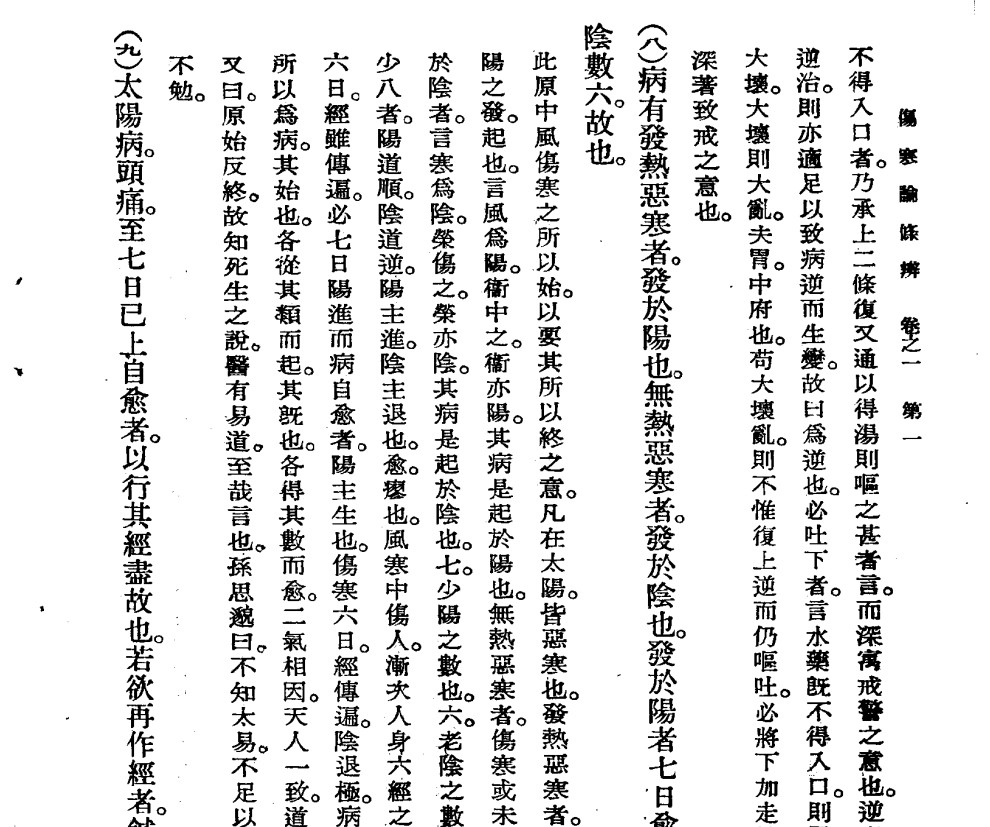 傷寒論條辨 卷之一 第一
不得入口者。乃承上二條復又通以得湯則嘔之甚者言。而深寓戒警之意也。逆
逆治。則亦適足以致病逆而生變。故曰爲逆也。必吐下者。言水藥旣不得入口。則
大壞。大壞則大亂。夫胃。中府也。苟大壞亂。則不惟復上逆而仍嘔吐。必將下加走
深著致戒之意也。
(八)病有發熱惡寒者。發於陽也。無熱惡寒者。發於陰也。發於陽者七日愈
陰數六。故也。
此原中風傷寒之所以始。以要其所以終之意。凡在太陽。皆惡寒也。發熱惡寒者。
陽之發。起也。言風爲陽。衞中之。衞亦陽。其病是起於陽也。無熱惡寒者。傷寒或未
於陰者。言寒爲陰。榮傷之。榮亦陰。其病是起於陰也。七。少陽之數也。六。老陰之數
少八者。陽道順。陰道逆。陽主進。陰主退也。愈。瘳也。風寒中傷人。漸次人身六經之
六日。經雖傳遍。必七日陽進而病自愈者。陽主生也。傷寒六日。經傳遍。陰退極。病
所以爲病。其始也。各從其類而起。其旣也。各得其數而愈。二氣相因。天人一致。道
又曰。原始反終。故知死生之說。醫有易道。至哉言也。孫思邈曰。不知太易。不足以
不勉。
(九)太陽病。頭痛。至七日已上自愈者。以行其經盡故也。若欲再作經者。